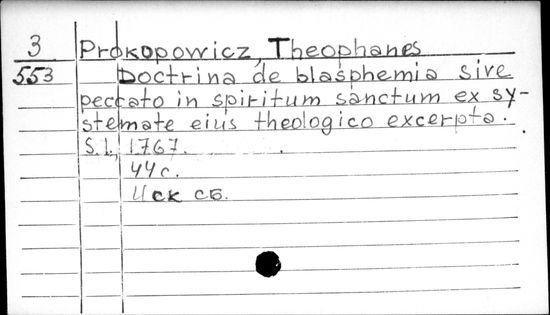 3 Prokopowicz, Theophanes
553 Doctrina de blasphemia sive
peccato in spiritum sanctum ex sy-
stemate eius theologico excerpta.
S.l., 1767.
44 с.
Иск сб.